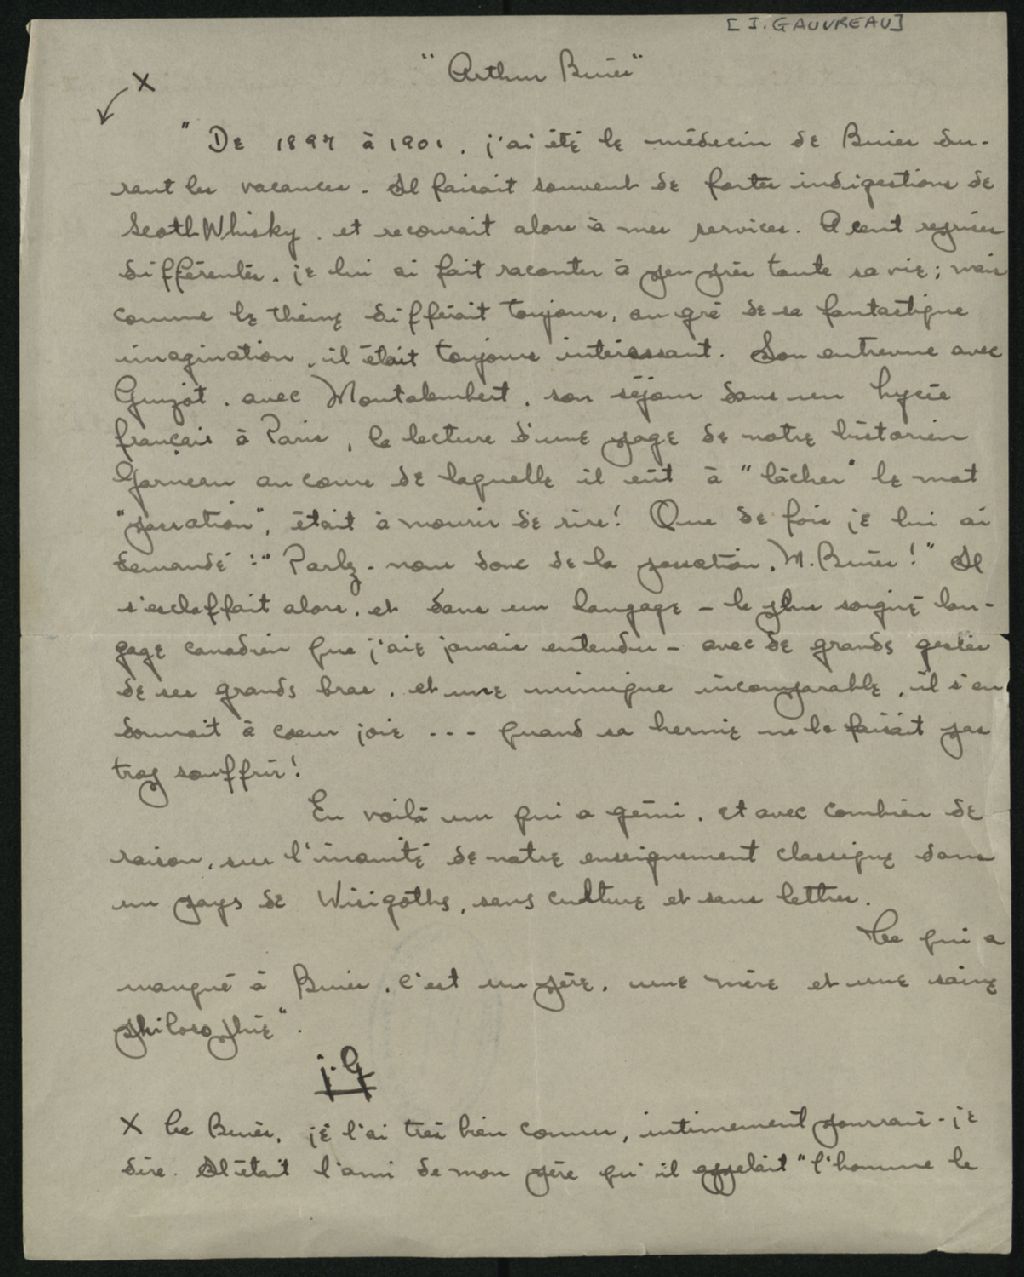 [J. GAUVREAU]
"Arthur Buies"
X
" De 1897 à 1901, j'ai été le médecin de Buies du-
rant les vacances. Il faisait souvent de fortes indigestions de
Scoth Whisky, et recourait alors à mes services. A cent reprises
différentes, je lui ai fait raconter à peu près toute sa vie; mais
comme le thème différait toujours, au gré de sa fantastique
imagination, il était toujours intéressant. Son entrevue avec
Guizot, avec Montalembert, son séjour dans un lycée
français à Paris, la lecture d'une page de notre historien
Garneau au cours de laquelle il eût à "lâcher" le mot
"passation", était à mourir de rire! Que de fois je lui ai
demandé: "Parlez-nous donc de la passation, M. Buies!" Il
s'esclaffait alors, et dans un langage - le plus soigné lan-
gage canadien que j'aie jamais entendu - avec de grands gestes
de ses grands bras, et une mimique incomparable, il s'en
donnait à coeur joie ... quand sa hernie ne le faisait pas
trop souffrir!
En voilà un qui a gémi, et avec combien de
raison, sur l'inanité de notre enseignement classique dans
un pays de Wisigoths, sans culture et sans lettres.
Ce qui a
manqué à Buies, c'est un père, une mère et une saine
philosophie".
j.G
X Ce Buies, je l'ai très bien connu, intimement pourrais-je
dire. Il était l'ami de mon père qu'il appelait "l'homme le